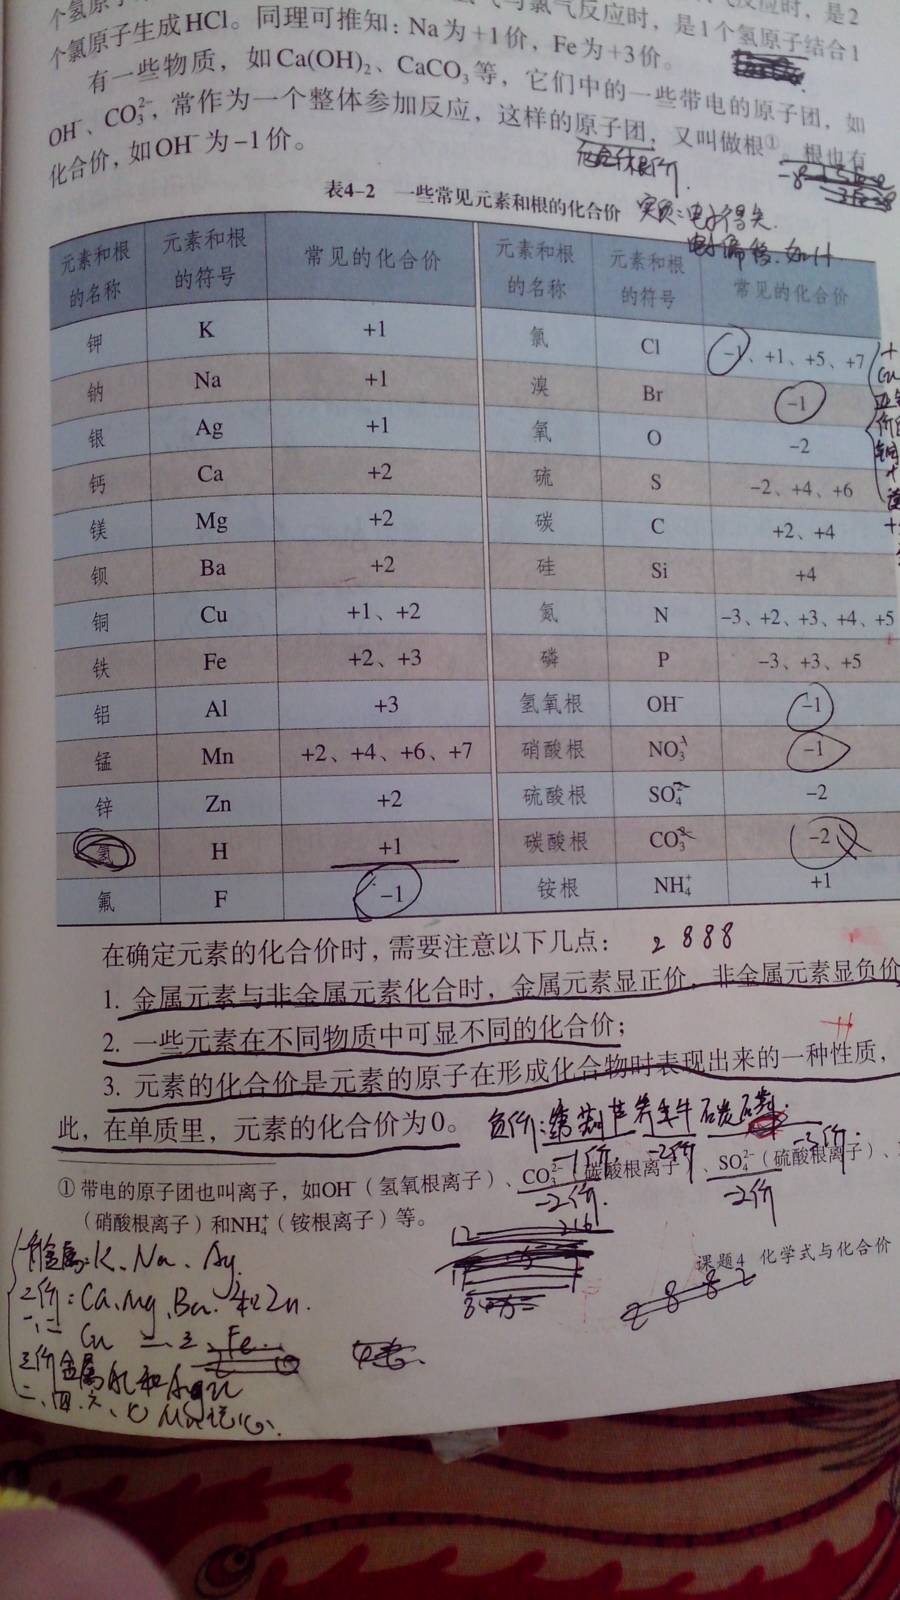 反应时，是2
个氯原子生成HCl。同理可推知：Na为+1价，Fe为+3价。
气与氯气反应时，是1个氢原子结合1
有一些物质，如Ca(OH)₂、CaCO₃等，它们中的一些带电的原子团，如
OH⁻、CO₃²⁻，常作为一个整体参加反应，这样的原子团，又叫做根①。根也有
化合价，如OH⁻为-1价。
表4-2 一些常见元素和根的化合价
实质：电子得失
电子偏移
元素和根的名称 元素和根的符号 常见的化合价 元素和根的名称 元素和根的符号 常见的化合价
钾 K +1 氯 Cl -1、+1、+5、+7
钠 Na +1 溴 Br -1
银 Ag +1 氧 O -2
钙 Ca +2 硫 S -2、+4、+6
镁 Mg +2 碳 C +2、+4
钡 Ba +2 硅 Si +4
铜 Cu +1、+2 氮 N -3、+2、+3、+4、+5
铁 Fe +2、+3 磷 P -3、+3、+5
铝 Al +3 氢氧根 OH⁻ -1
锰 Mn +2、+4、+6、+7 硝酸根 NO₃⁻ -1
锌 Zn +2 硫酸根 SO₄²⁻ -2
氢 H +1 碳酸根 CO₃²⁻ -2
氟 F -1 铵根 NH₄⁺ +1
在确定元素的化合价时，需要注意以下几点：
2 8 8 8
1. 金属元素与非金属元素化合时，金属元素显正价，非金属元素显负价
2. 一些元素在不同物质中可显不同的化合价；
3. 元素的化合价是元素的原子在形成化合物时表现出来的一种性质，
此，在单质里，元素的化合价为0。
负价：
-1价 -2价 -3价
① 带电的原子团也叫离子，如OH⁻（氢氧根离子）、CO₃²⁻（碳酸根离子）、SO₄²⁻（硫酸根离子）、
-2价 -2价
（硝酸根离子）和NH₄⁺（铵根离子）等。
课题4 化学式与化合价
2 8 8 2
金属：K、Na、Ag
二价：Ca、Mg、Ba和Zn.
一、二Cu 二、三Fe
三价金属Al
二、四、六、七Mn